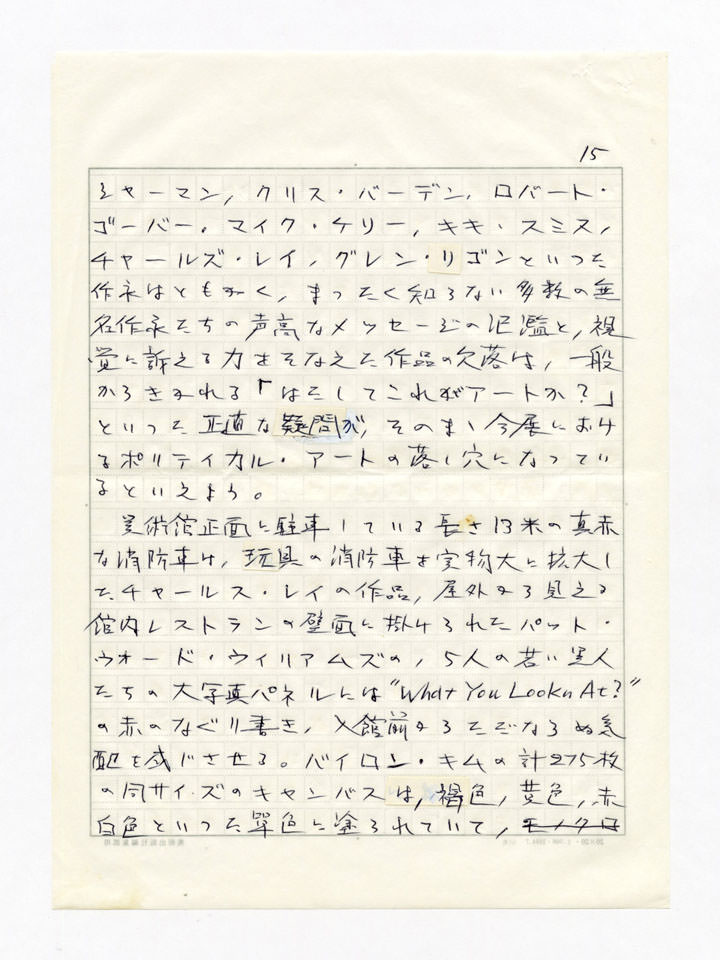 15
シャーマン, クリス・バーデン, ロバート・
ゴーバー, マイク・ケリー, キキ・スミス,
チャールズ・レイ, グレン・リゴンといった
作家はともかく, まったく知らない多数の無
名作家たちの声高なメッセージの氾濫と, 視
覚に訴える力をそなえた作品の欠落は, 一般
からきかれる「はたしてこれがアートか?」
といった正直な疑問が, そのまゝ今展におけ
るポリティカル・アートの落し穴になってい
るといえよう。
美術館正面に駐車している長さ13米の真赤
な消防車は, 玩具の消防車を実物大に拡大し
たチャールス・レイの作品, 屋外から見える
館内レストランの壁面に掛けられたパット・
ウォード・ウィリアムズの, 5人の若い黒人
たちの大写真パネルには"What You Lookn At?"
の赤のなぐり書き, 入館前からたゞならぬ気
配を感じさせる。バイロン・キムの計275枚
の同サイズのキャンバスは, 褐色, 黄色, 赤
白色といった単色に塗られていて, モノクロ